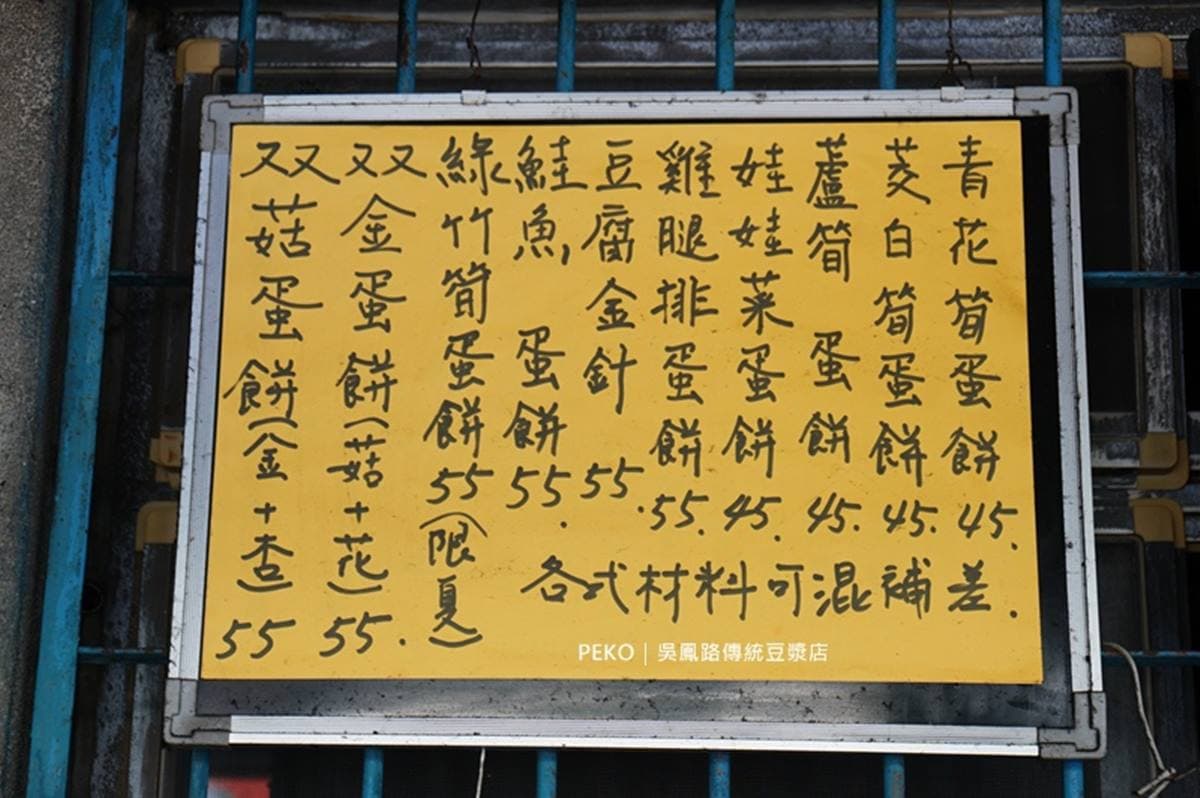 青花筍蛋餅45.
茭白筍蛋餅45.
蘆筍蛋餅45.
娃娃菜蛋餅45.
雞腿排蛋餅55.
豆腐金針55.
鮭魚蛋餅55.
綠竹筍蛋餅55(限夏)
双双金蛋餅(菇+花)55.
双双菇蛋餅(金+杏)55
各式材料可混補差.
PEKO｜吳鳳路傳統豆漿店